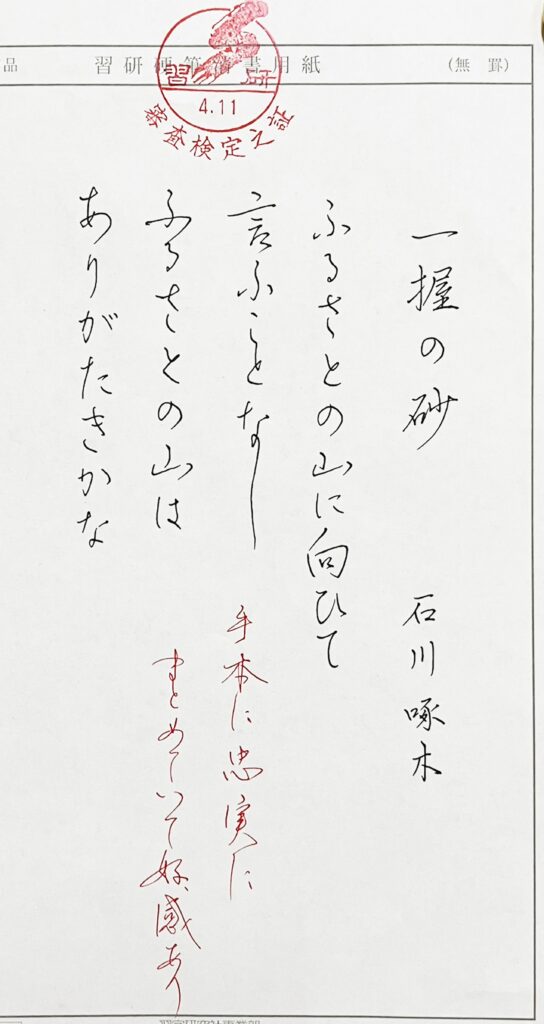 品 習研硬筆清書用紙 (無罫)
習 研
4.11
審査検定之証
一握の砂 石川啄木
ふるさとの山に向ひて
言ふことなし
ふるさとの山は
ありがたきかな
手本に忠実に
まとめていて好感あり